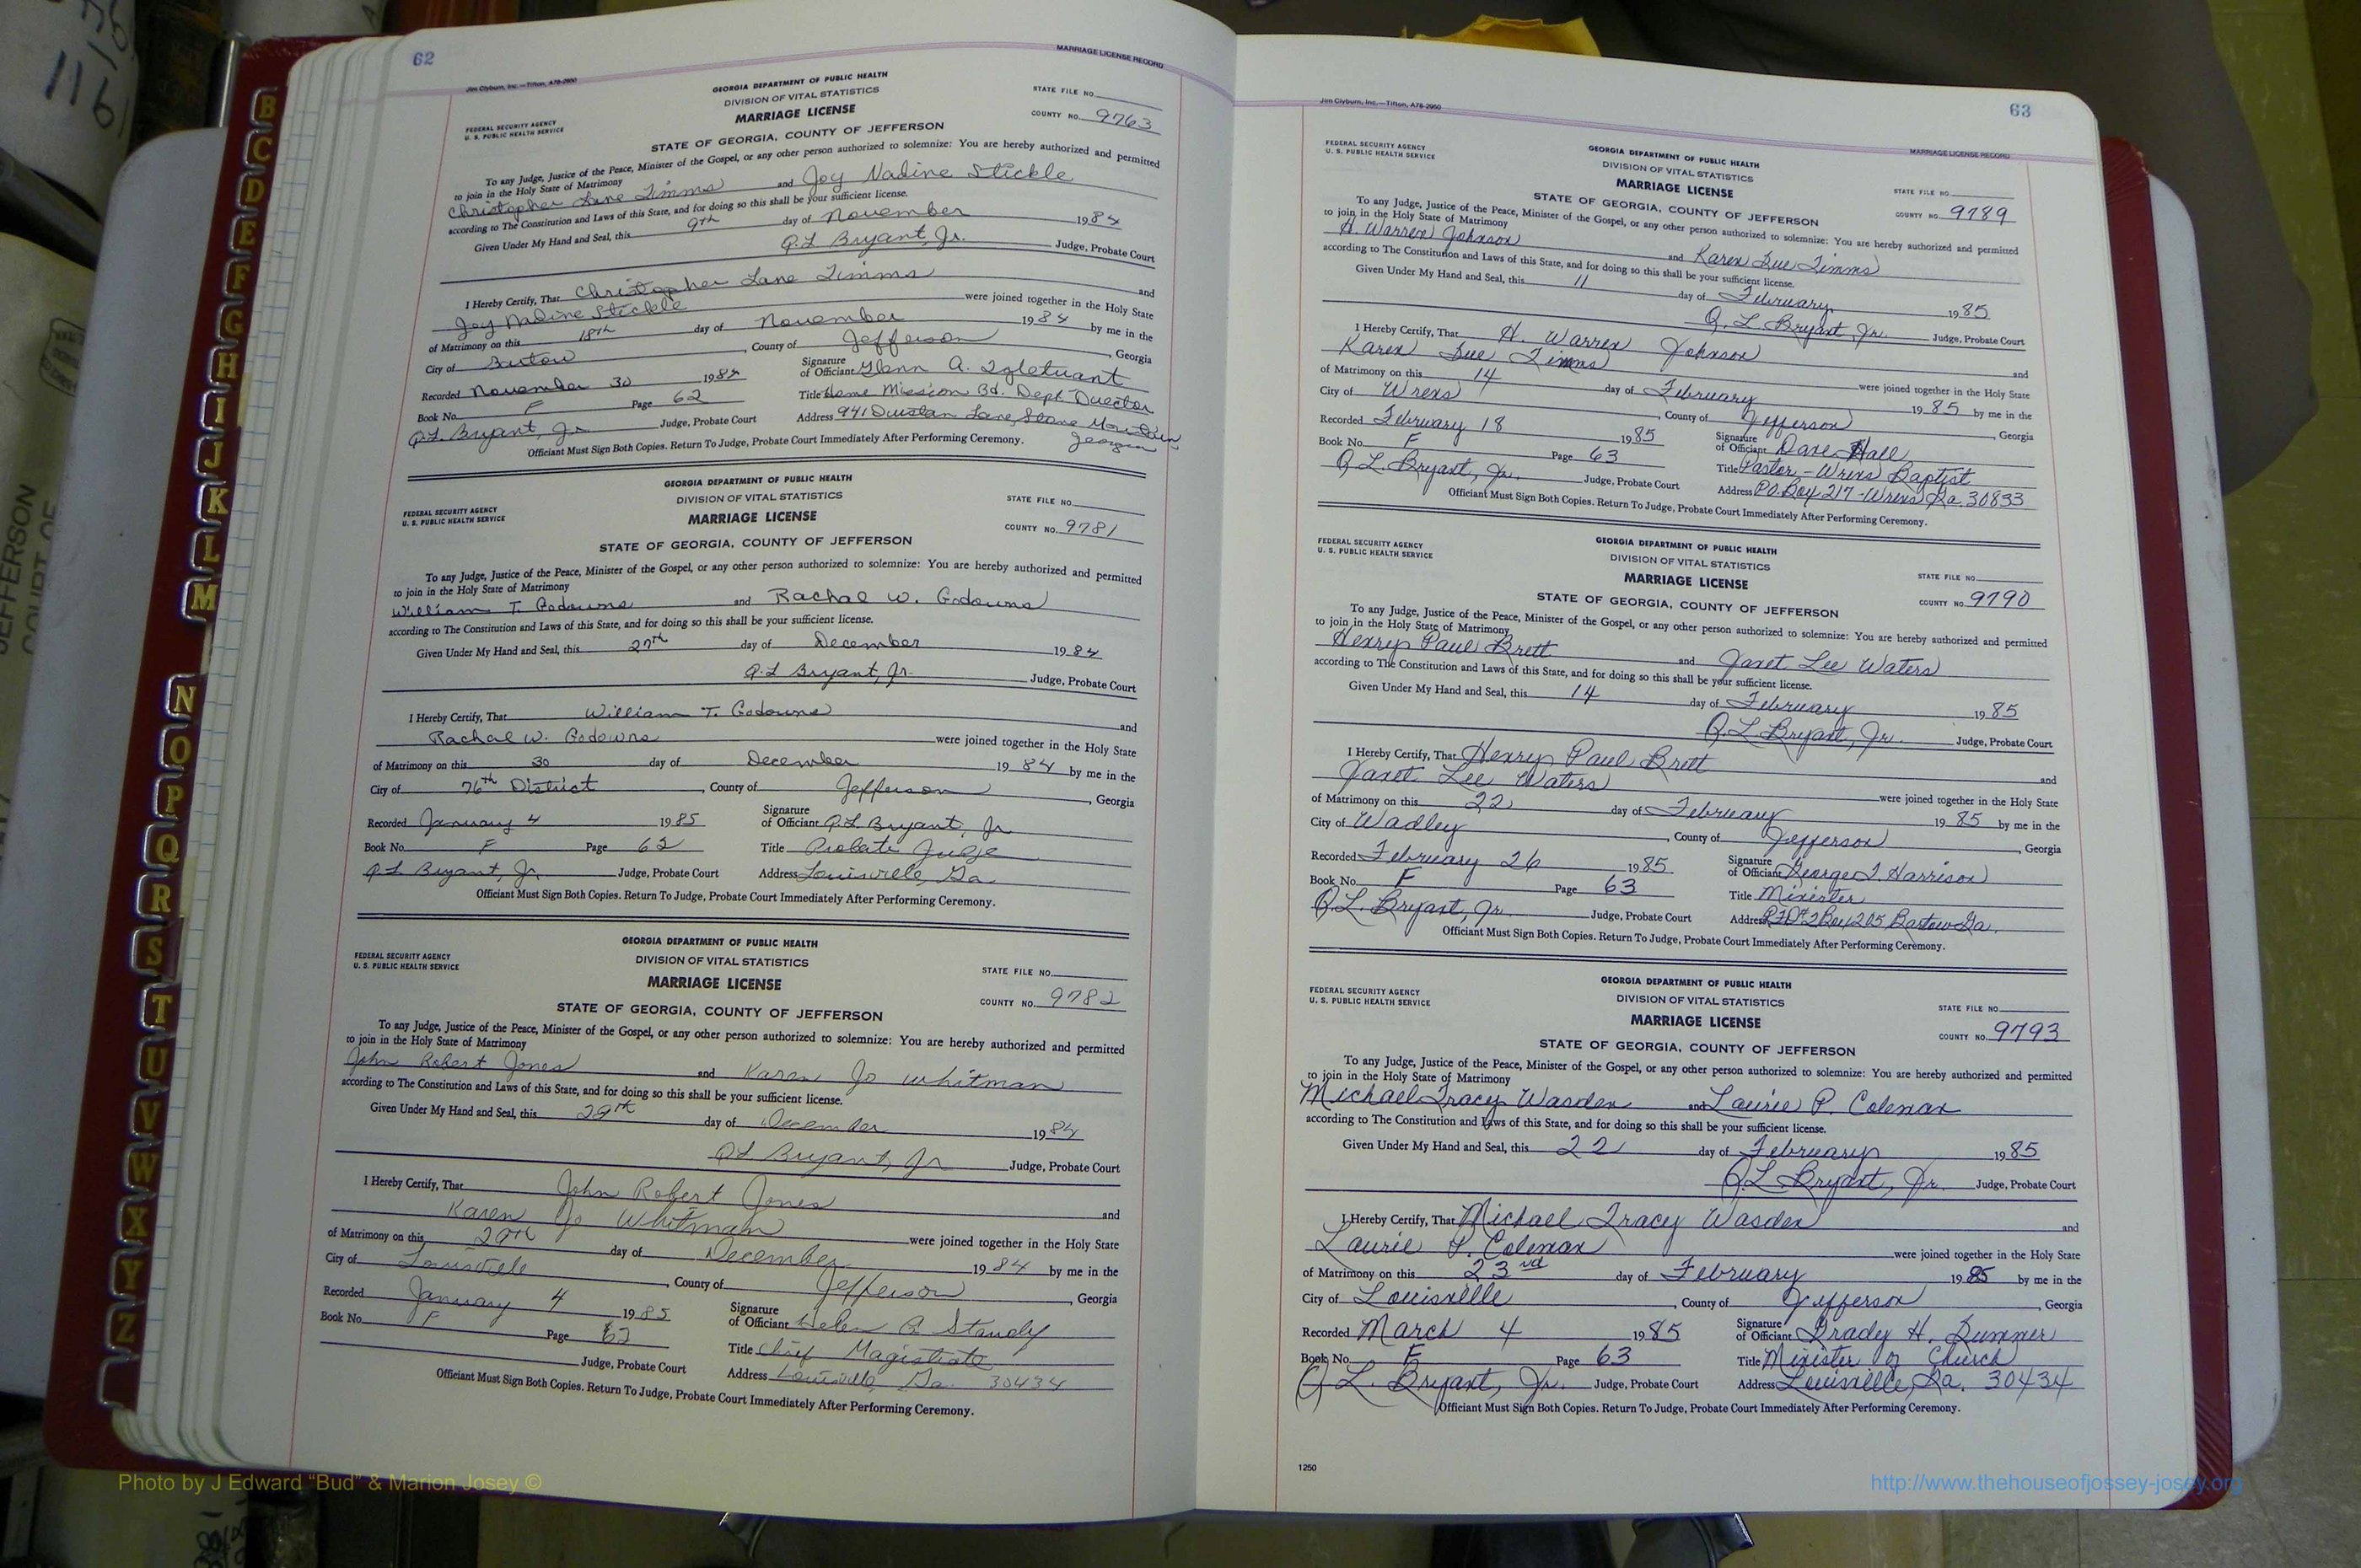 62
Jim Clyburn, Inc.—Tifton, A78-2950
MARRIAGE LICENSE RECORD
GEORGIA DEPARTMENT OF PUBLIC HEALTH
DIVISION OF VITAL STATISTICS
MARRIAGE LICENSE
STATE FILE NO.
COUNTY NO. 9763
FEDERAL SECURITY AGENCY
U. S. PUBLIC HEALTH SERVICE
STATE OF GEORGIA, COUNTY OF JEFFERSON
To any Judge, Justice of the Peace, Minister of the Gospel, or any other person authorized to solemnize: You are hereby authorized and permitted
to join in the Holy State of Matrimony
Christopher Lane Timms and Joy Nadine Stickle
according to The Constitution and Laws of this State, and for doing so this shall be your sufficient license.
Given Under My Hand and Seal, this 9th day of November 1984
Q.L Bryant, Jr. Judge, Probate Court
I Hereby Certify, That Christopher Lane Timms and
Joy Nadine Stickle were joined together in the Holy State
of Matrimony on this 18th day of November 1984 by me in the
City of , County of Jefferson, Georgia
Recorded November 30 1984 Signature of Officiant Glenn A.
Book No. F Page 62 Title Home Mission Bd. Dept Director
Q.L. Bryant, Jr. Judge, Probate Court Address 941 Lane, Stone Mountain,
Georgia
Officiant Must Sign Both Copies. Return To Judge, Probate Court Immediately After Performing Ceremony.
GEORGIA DEPARTMENT OF PUBLIC HEALTH
DIVISION OF VITAL STATISTICS
MARRIAGE LICENSE
STATE FILE NO.
COUNTY NO. 9781
FEDERAL SECURITY AGENCY
U. S. PUBLIC HEALTH SERVICE
STATE OF GEORGIA, COUNTY OF JEFFERSON
To any Judge, Justice of the Peace, Minister of the Gospel, or any other person authorized to solemnize: You are hereby authorized and permitted
to join in the Holy State of Matrimony
William T. Godowns and Rachal W. Godowns
according to The Constitution and Laws of this State, and for doing so this shall be your sufficient license.
Given Under My Hand and Seal, this 27th day of December 1984
Q.L Bryant, Jr. Judge, Probate Court
I Hereby Certify, That William T. Godowns and
Rachal W. Godowns were joined together in the Holy State
of Matrimony on this 30 day of December 1984 by me in the
City of 76th District, County of Jefferson, Georgia
Recorded January 4 1985 Signature of Officiant Q.L. Bryant, Jr
Book No. F Page 62 Title Probate Judge
Q L Bryant, Jr. Judge, Probate Court Address Louisville, Ga
Officiant Must Sign Both Copies. Return To Judge, Probate Court Immediately After Performing Ceremony.
GEORGIA DEPARTMENT OF PUBLIC HEALTH
DIVISION OF VITAL STATISTICS
MARRIAGE LICENSE
STATE FILE NO.
COUNTY NO. 9782
FEDERAL SECURITY AGENCY
U. S. PUBLIC HEALTH SERVICE
STATE OF GEORGIA, COUNTY OF JEFFERSON
To any Judge, Justice of the Peace, Minister of the Gospel, or any other person authorized to solemnize: You are hereby authorized and permitted
to join in the Holy State of Matrimony
John Robert Jones and Karen Jo Whitman
according to The Constitution and Laws of this State, and for doing so this shall be your sufficient license.
Given Under My Hand and Seal, this 29th day of December 1984
Q L Bryant, Jr Judge, Probate Court
I Hereby Certify, That John Robert Jones and
Karen Jo Whitman were joined together in the Holy State
of Matrimony on this 29th day of December 1984 by me in the
City of Louisville, County of Jefferson, Georgia
Recorded January 4 1985 Signature of Officiant Helen Standy
Book No. F Page 62 Title Chief Magistrate
Judge, Probate Court Address Louisville, Ga. 30434
Officiant Must Sign Both Copies. Return To Judge, Probate Court Immediately After Performing Ceremony.
63
Jim Clyburn, Inc.—Tifton, A78-2950
MARRIAGE LICENSE RECORD
FEDERAL SECURITY AGENCY
U. S. PUBLIC HEALTH SERVICE
GEORGIA DEPARTMENT OF PUBLIC HEALTH
DIVISION OF VITAL STATISTICS
MARRIAGE LICENSE
STATE FILE NO.
COUNTY NO. 9789
STATE OF GEORGIA, COUNTY OF JEFFERSON
To any Judge, Justice of the Peace, Minister of the Gospel, or any other person authorized to solemnize: You are hereby authorized and permitted
to join in the Holy State of Matrimony
H. Warren Johnson and Karen Sue Timms
according to The Constitution and Laws of this State, and for doing so this shall be your sufficient license.
Given Under My Hand and Seal, this 11 day of February 1985
Q. L. Bryant Jr. Judge, Probate Court
I Hereby Certify, That H. Warren Johnson and
Karen Sue Timms were joined together in the Holy State
of Matrimony on this 14 day of February 1985 by me in the
City of Wrens, County of Jefferson, Georgia
Recorded February 18 1985 Signature of Officiant Dave Hall
Book No. F Page 63 Title Pastor - Wrens Baptist
Q L. Bryant, Jr. Judge, Probate Court Address P.O. Box 217 - Wrens, Ga. 30833
Officiant Must Sign Both Copies. Return To Judge, Probate Court Immediately After Performing Ceremony.
FEDERAL SECURITY AGENCY
U. S. PUBLIC HEALTH SERVICE
GEORGIA DEPARTMENT OF PUBLIC HEALTH
DIVISION OF VITAL STATISTICS
MARRIAGE LICENSE
STATE FILE NO.
COUNTY NO. 9790
STATE OF GEORGIA, COUNTY OF JEFFERSON
To any Judge, Justice of the Peace, Minister of the Gospel, or any other person authorized to solemnize: You are hereby authorized and permitted
to join in the Holy State of Matrimony
Henry Paul Brett and Janet Lee Waters
according to The Constitution and Laws of this State, and for doing so this shall be your sufficient license.
Given Under My Hand and Seal, this 14 day of February 1985
Q. L Bryant, Jr. Judge, Probate Court
I Hereby Certify, That Henry Paul Brett and
Janet Lee Waters were joined together in the Holy State
of Matrimony on this 22 day of February 1985 by me in the
City of Wadley, County of Jefferson, Georgia
Recorded February 26 1985 Signature of Officiant George T. Harrison
Book No. F Page 63 Title Minister
Q. L. Bryant, Jr. Judge, Probate Court Address RFD #2 Box 205 Bartow Ga.
Officiant Must Sign Both Copies. Return To Judge, Probate Court Immediately After Performing Ceremony.
FEDERAL SECURITY AGENCY
U. S. PUBLIC HEALTH SERVICE
GEORGIA DEPARTMENT OF PUBLIC HEALTH
DIVISION OF VITAL STATISTICS
MARRIAGE LICENSE
STATE FILE NO.
COUNTY NO. 9793
STATE OF GEORGIA, COUNTY OF JEFFERSON
To any Judge, Justice of the Peace, Minister of the Gospel, or any other person authorized to solemnize: You are hereby authorized and permitted
to join in the Holy State of Matrimony
Michael Tracy Wasden and Laurie P. Coleman
according to The Constitution and Laws of this State, and for doing so this shall be your sufficient license.
Given Under My Hand and Seal, this 22 day of February 1985
Q. L Bryant, Jr. Judge, Probate Court
I Hereby Certify, That Michael Tracy Wasden and
Laurie P. Coleman were joined together in the Holy State
of Matrimony on this 23rd day of February 1985 by me in the
City of Louisville, County of Jefferson, Georgia
Recorded March 4 1985 Signature of Officiant Grady H. Sumner
Book No. F Page 63 Title Minister of Church
Q L. Bryant, Jr. Judge, Probate Court Address Louisville, Ga. 30434
Officiant Must Sign Both Copies. Return To Judge, Probate Court Immediately After Performing Ceremony.
1250
B
C
D
E
F
G
H
I
J
K
L
M
N
O
P
Q
R
S
T
U
V
W
X
Y
Z
JEFFERSON
COURT OF
Photo by J Edward "Bud" & Marion Josey ©
http://www.thehouseofjossey-josey.org